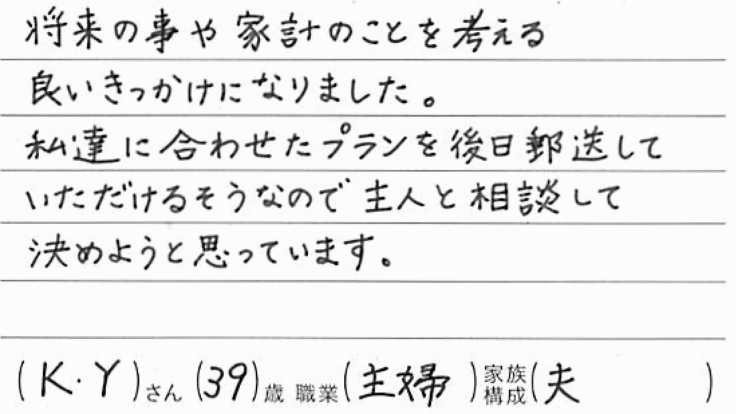 将来の事や家計のことを考える
良いきっかけになりました。
私達に合わせたプランを後日郵送して
いただけるそうなので主人と相談して
決めようと思っています。
(K・Y)さん(39)歳 職業(主婦)家族構成(夫　　)